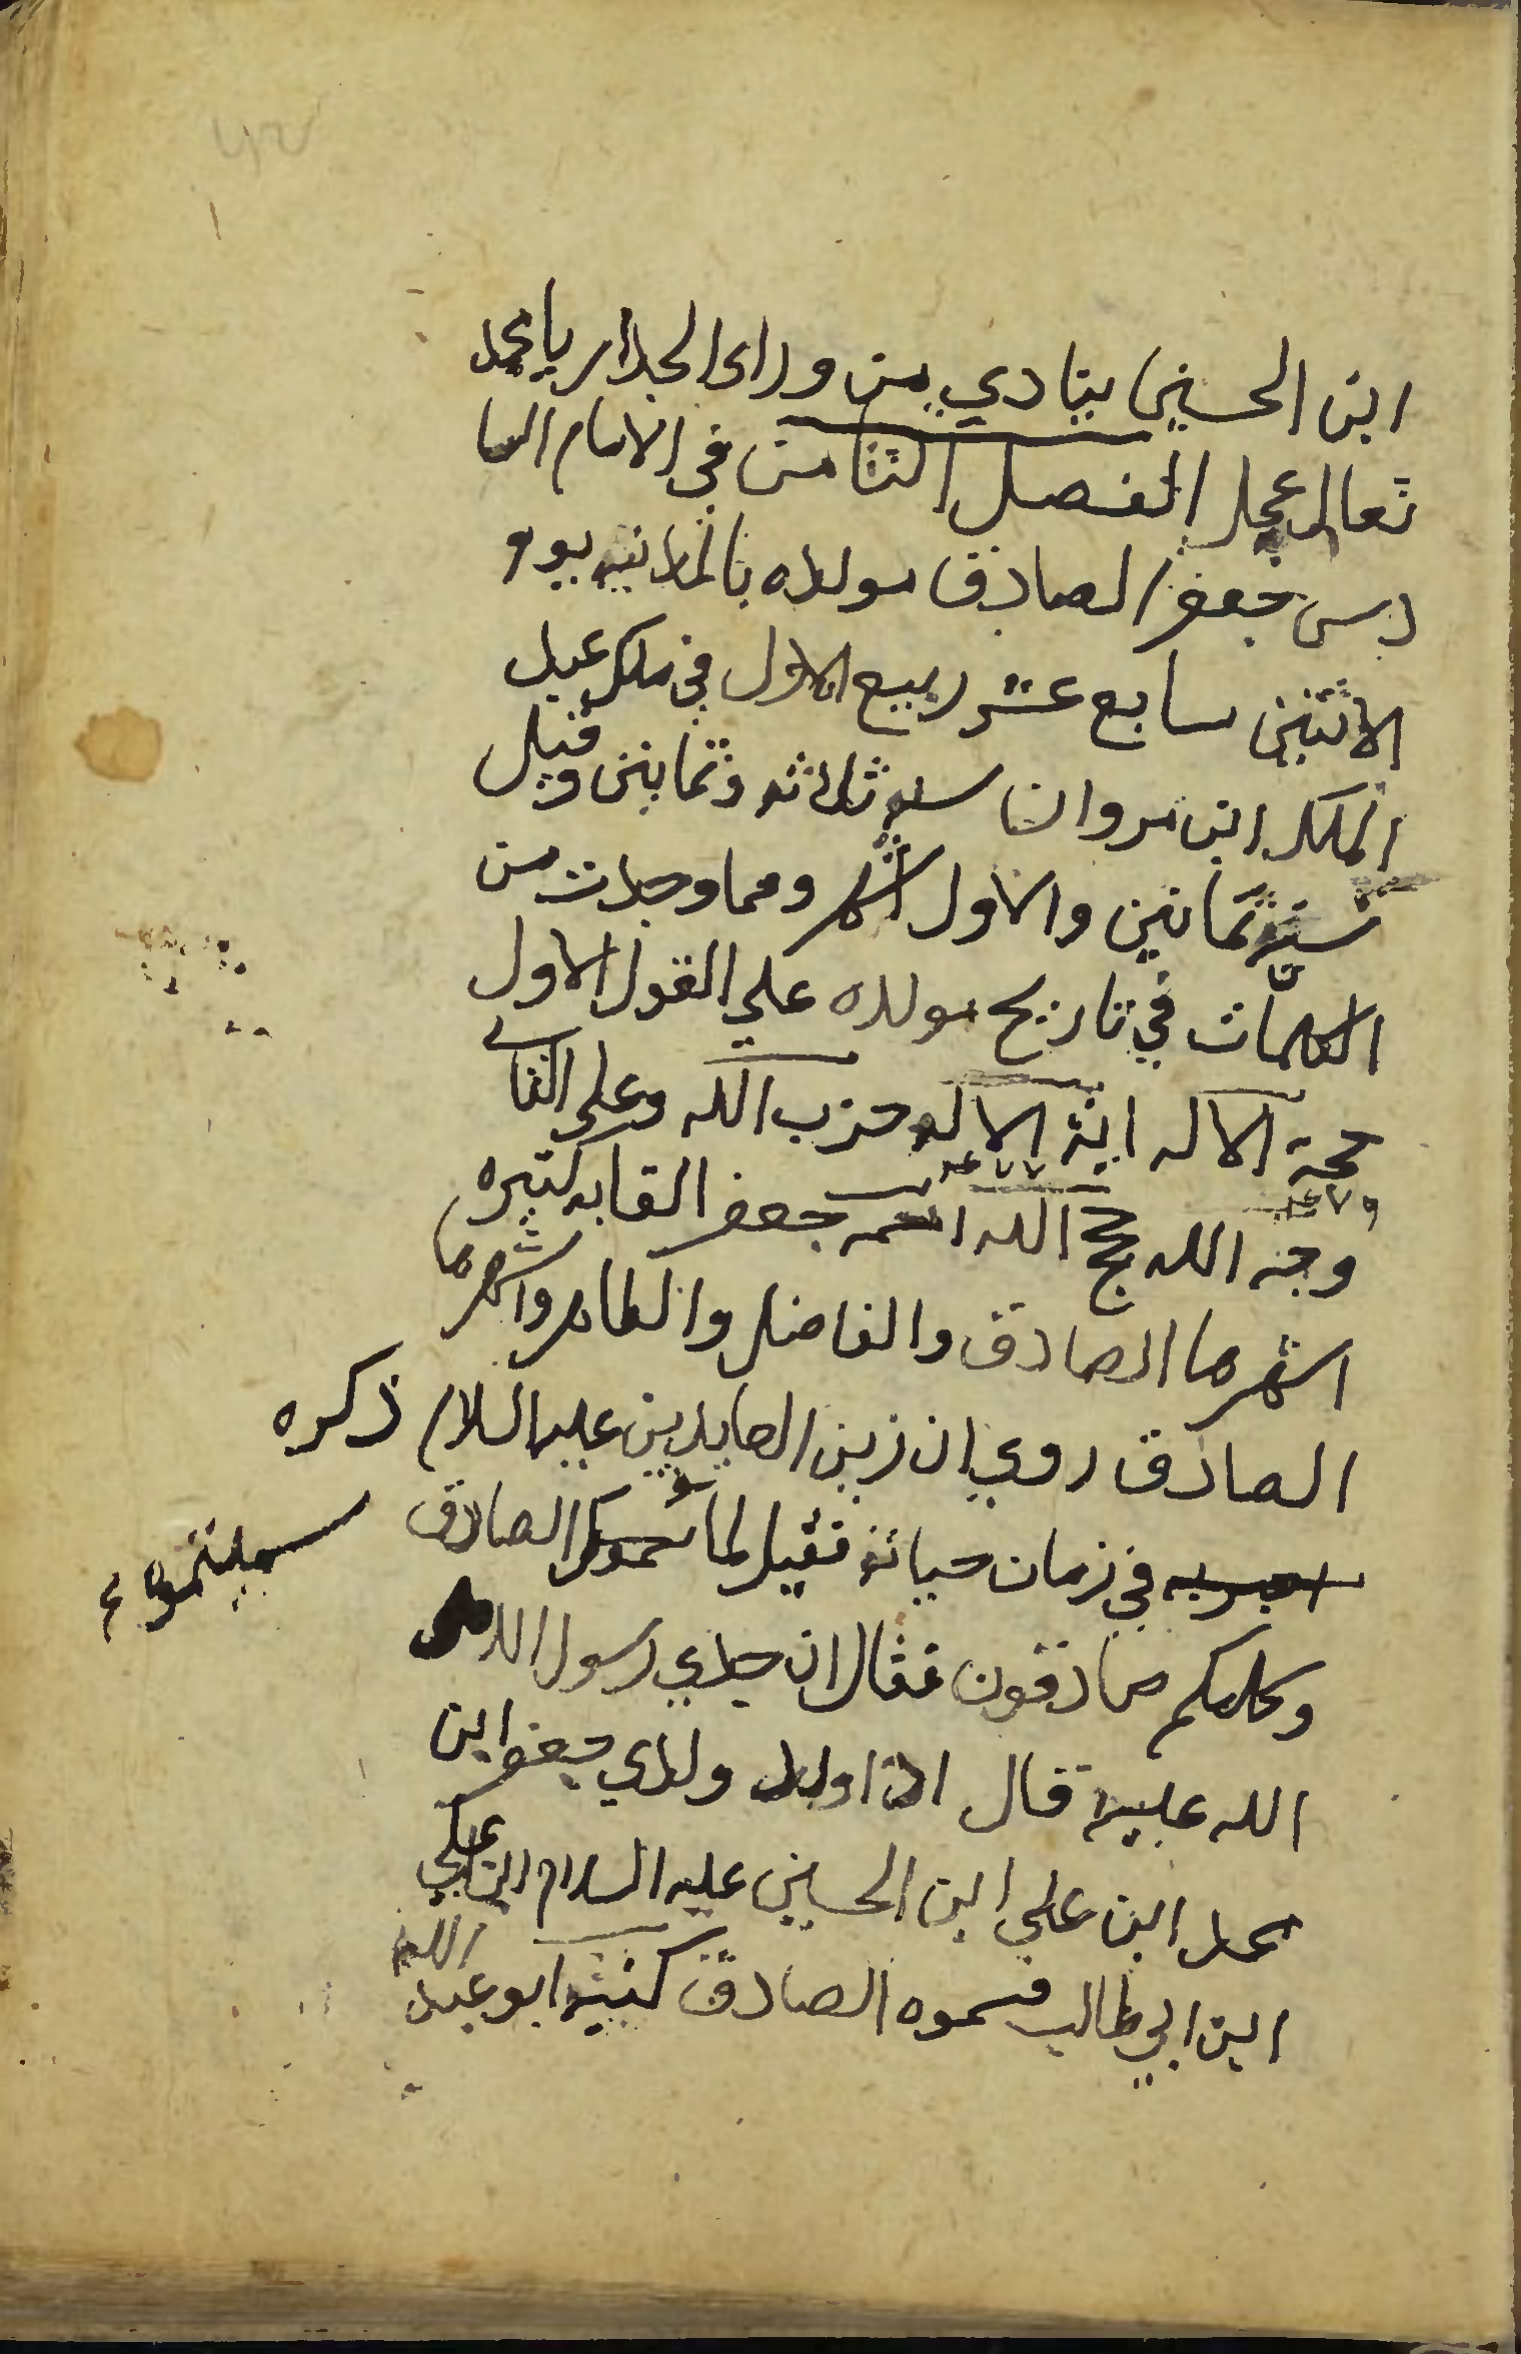 ابن الحسين ينادي من وراى الجدار يا محمد
تعالى عجل الفصل الثامن في الامام السا
دس جعفر الصادق مولده بالمدينه يوم
الاثنين سابع عشر ربيع الاول في ملك عبد
الملك ابن مروان سنه ثلاثه وثمانين وقيل
ستة وثمانين والاول اشهر ومما وجدت من
الكلمات في تاريخ مولده على القول الاول
حجة الاله اية الاله حزب الله وعلى الثاني
وجه الله حجج الله اسمه جعفر القابه كثيره
اشهرها الصادق والفاضل والطاهر واشهرها
الصادق روي ان زين العابدين عليه السلام ذكره
في زمان حياته فقيل لما سميتموه الصادق
سميتموه
وكلكم صادقون فقال ان جدي رسول الله صلى
الله عليه قال اذا ولد ولدي جعفر ابن
محمد ابن علي ابن الحسين عليه السلام ابن علي
ابن ابي طالب فسموه الصادق كنيته ابو عبد
الله